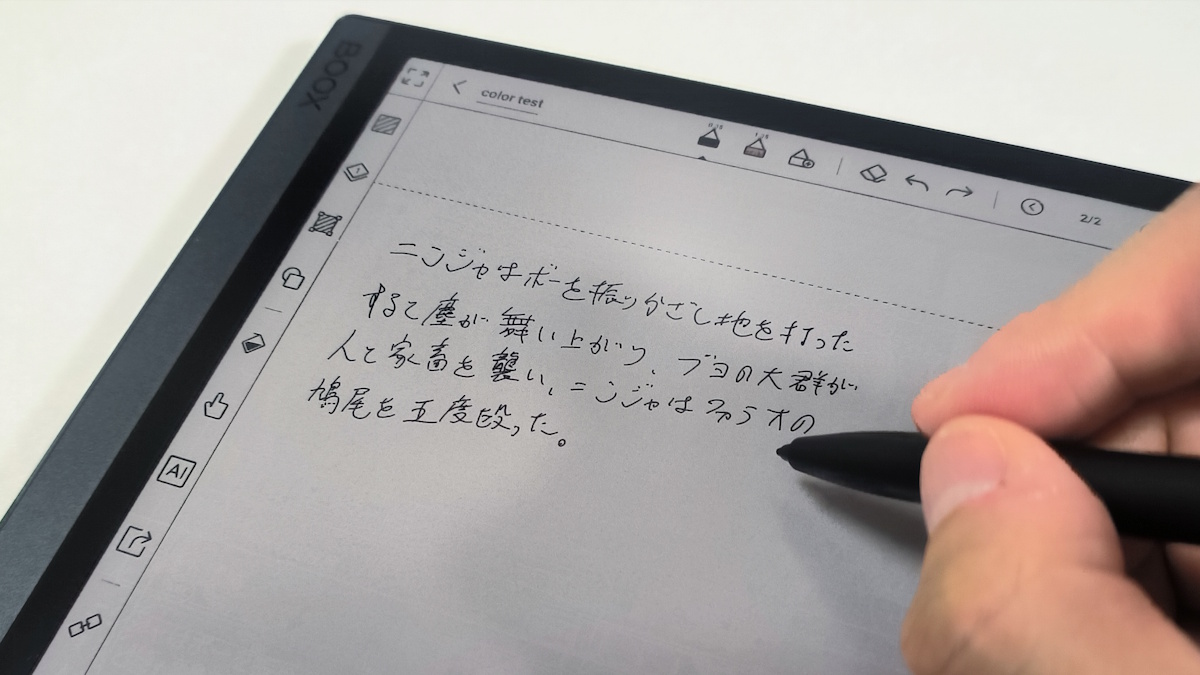 BOOX
color test
2/2
ニンジャはボーを振りかざし地を打った
すると塵が舞い上がり、ブヨの大群が
人と家畜を襲い、ニンジャはファラオの
鳩尾を五度殴った。
AI